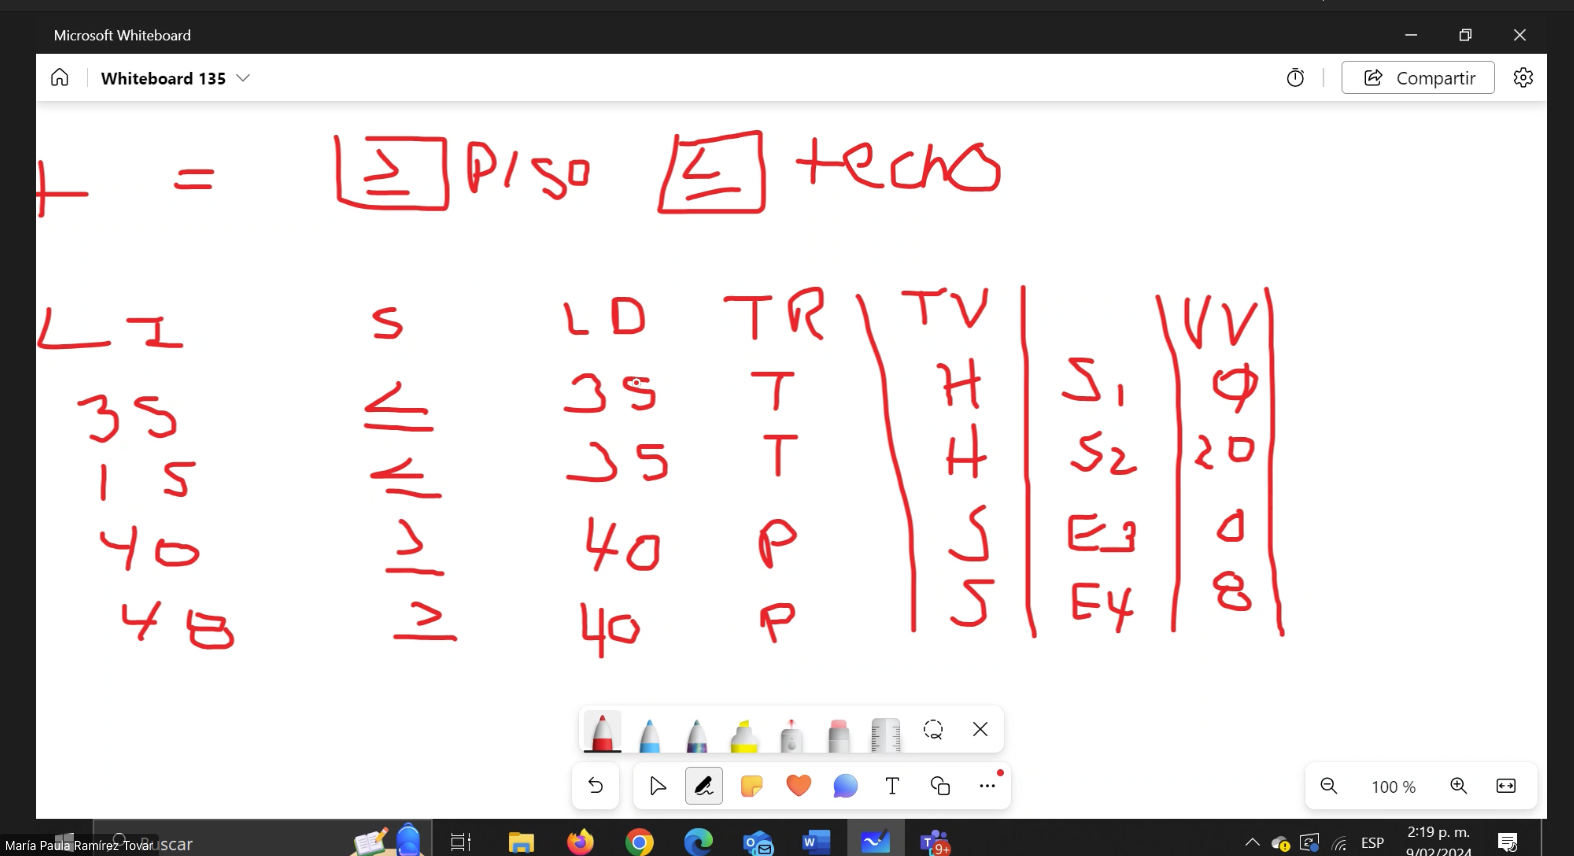 Microsoft Whiteboard
Whiteboard 135
Compartir
+ = ≥ PISO ≤ techo
LI S LD TR TV VV
35 ≤ 35 T H S1 0
15 ≤ 35 T H S2 20
40 ≥ 40 P S E3 0
48 ≥ 40 P S E4 8
100 %
María Paula Ramírez Tovar
ESP
2:19 p. m.
9/02/2024
9+